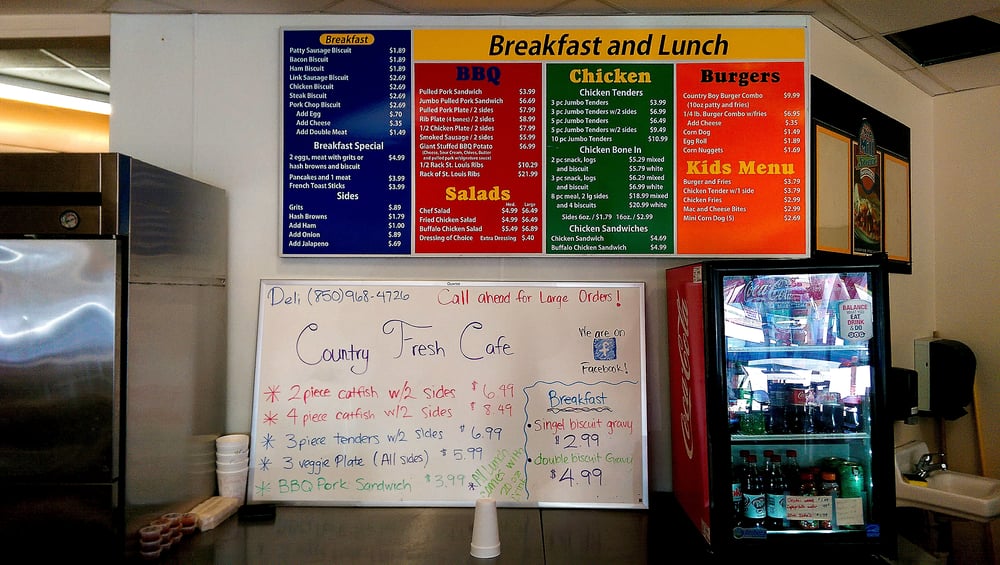 Breakfast
Patty Sausage Biscuit $1.89
Bacon Biscuit $1.89
Ham Biscuit $1.89
Link Sausage Biscuit $2.69
Chicken Biscuit $2.69
Steak Biscuit $2.69
Pork Chop Biscuit $2.69
Add Egg $.70
Add Cheese $.35
Add Double Meat $1.49
Breakfast Special
2 eggs, meat with grits or $4.99
hash browns and biscuit
Pancakes and 1 meat $3.99
French Toast Sticks $3.99
Sides
Grits $.89
Hash Browns $1.79
Add Ham $1.00
Add Onion $.89
Add Jalapeno $.69
Breakfast and Lunch
BBQ
Pulled Pork Sandwich $3.99
Jumbo Pulled Pork Sandwich $6.69
Pulled Pork Plate / 2 sides $7.99
Rib Plate (4 bones) / 2 sides $8.99
1/2 Chicken Plate / 2 sides $7.99
Smoked Sausage / 2 sides $5.99
Giant Stuffed BBQ Potato $6.99
(Cheese, Sour Cream, Chives, Butter
and pulled pork w/signature sauce)
1/2 Rack St. Louis Ribs $10.29
Rack of St. Louis Ribs $21.99
Salads
Med. Large
Chef Salad $4.99 $6.49
Fried Chicken Salad $4.99 $6.49
Buffalo Chicken Salad $5.49 $6.89
Dressing of Choice Extra Dressing $.40
Chicken
Chicken Tenders
3 pc Jumbo Tenders $3.99
3 pc Jumbo Tenders w/2 sides $6.99
5 pc Jumbo Tenders $6.49
5 pc Jumbo Tenders w/2 sides $9.49
10 pc Jumbo Tenders $10.99
Chicken Bone In
2 pc snack, logs $5.29 mixed
and biscuit $5.79 white
3 pc snack, logs $6.29 mixed
and biscuit $6.99 white
8 pc meal, 2 lg sides $18.99 mixed
and 4 biscuits $20.99 white
Sides 6oz. / $1.79 16oz. / $2.99
Chicken Sandwiches
Chicken Sandwich $4.69
Buffalo Chicken Sandwich $4.99
Burgers
Country Boy Burger Combo $9.99
(10oz patty and fries)
1/4 lb. Burger Combo w/fries $6.95
Add Cheese $.35
Corn Dog $1.49
Egg Roll $1.89
Corn Nuggets $1.69
Kids Menu
Burger and Fries $3.79
Chicken Tender w/1 side $3.79
Chicken Fries $2.99
Mac and Cheese Bites $2.99
Mini Corn Dog (5) $2.69
Deli (850)968-4726 Call ahead for Large Orders!
Country Fresh Cafe
We are on
f
Facebook!
* 2 piece catfish w/2 sides $6.49
* 4 piece catfish w/2 sides $8.49
* 3 piece tenders w/2 sides $6.99
* 3 veggie Plate (All sides) $5.99
* BBQ Pork Sandwich $3.99
* All Lunch
comes with
Breakfast
• Singel biscuit gravy
$2.99
• double biscuit Gravy
$4.99
Coca-Cola
Coca-Cola
BALANCE
WHAT YOU
EAT
DRINK
& DO